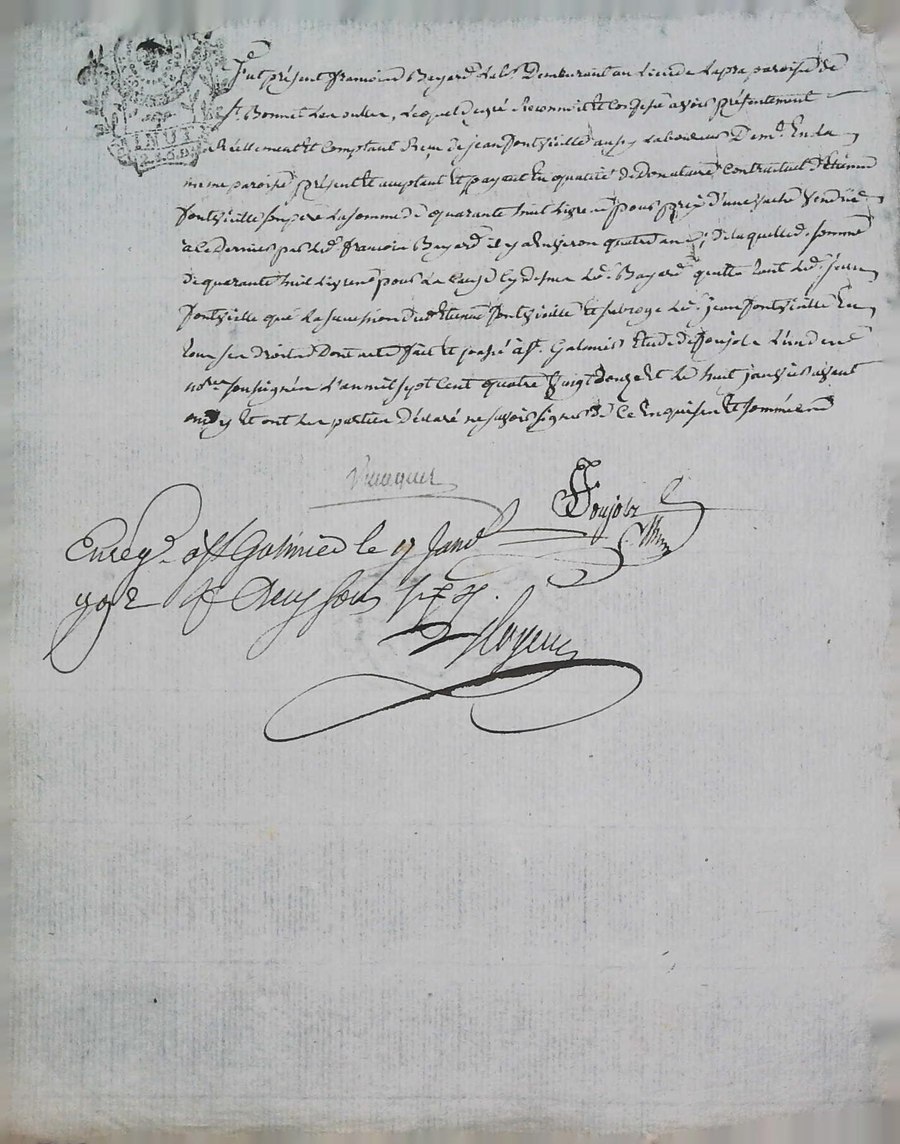 MINUT
Fut présent François Bayard Lab.r Demeurant au Lieu de Lapra paroisse de
St Bonnet Les oules, Lequel de gré Reconnoit et Confesse avoir présentement
Réellement et Comptant Reçu de jean fontvieille aussy Laboureur Dem.t En la
meme paroisse présent et acceptant et payant En qualité de Donataire Contractuel d'Etienne
fontvieille son père La somme de quarante huit Livres pour prix d'une vache vendue
a ce dernier par Led. françois Bayard il y a Environ quatre ans; de laquelle d. somme
de quarante huit Livres pour La Cause Cy dessus Led. Bayard quitte tant Led. jean
fontvieille que La succession dud. Etienne fontvieille Et subroge Led. jean fontvieille En
tous ses Droits Dont acte fait et passé à St. Galmier Etude de Soujol L'un des
no.res soussignés L'an mil sept Cent quatre vingt douze Et Le huit janvier avant
midy Et ont Les parties déclaré ne savoir signer de Ce Enquises Et sommées
Soujol
Enreg.é à St Galmier le 17 Janv.
1792 R Deux sous